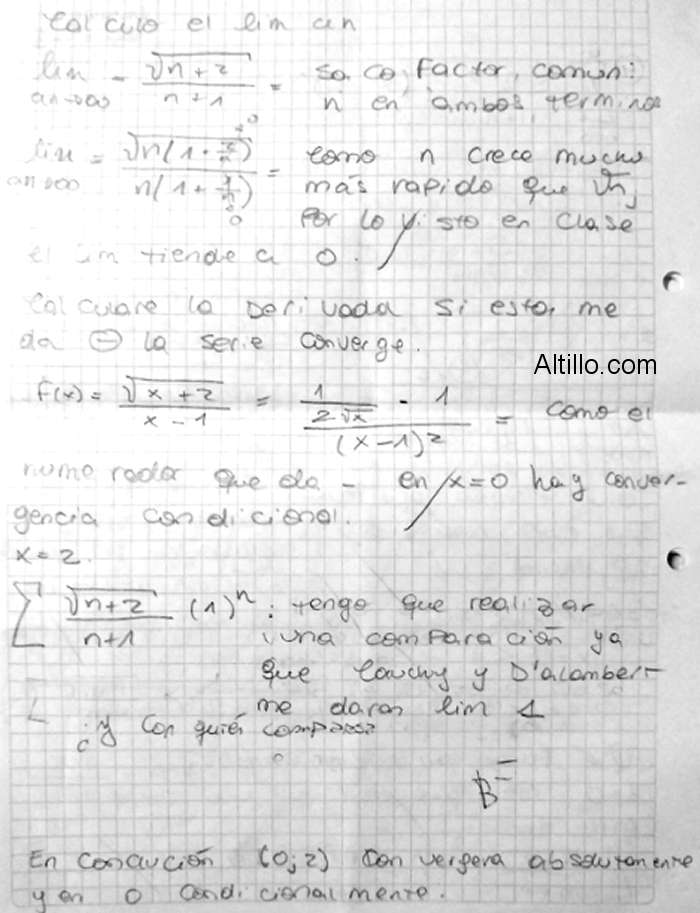 Calculo el lim an
lim an→∞ = √(n+2) / (n+1) = saco factor común:
n en ambos terminos
lim an→∞ = √(n(1+2/n)) / n(1+1/n) = como n crece mucho
más rapido que √n,
Por lo visto en clase
el lim tiende a 0.
Calculare la Derivada si esta, me
da ⊖ la serie converge.
Altillo.com
f(x) = √(x+2) / (x-1) = (1/(2√x) - 1) / (x-1)² = como el
numerador que da - en x=0 hay conver-
gencia condicional.
x=2.
Σ √(n+2) / (n+1) (1)ⁿ : tengo que realizar
una comparación ya
que Cauchy y D'alambert
me daran lim 1
¿y con quién
B=
En conclución (0;2) Convergera absolutamente
y en 0 condicionalmente.